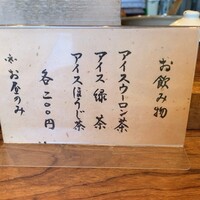 お飲み物
アイスウーロン茶
アイス緑茶
アイスほうじ茶
各二〇〇円
お昼のみ